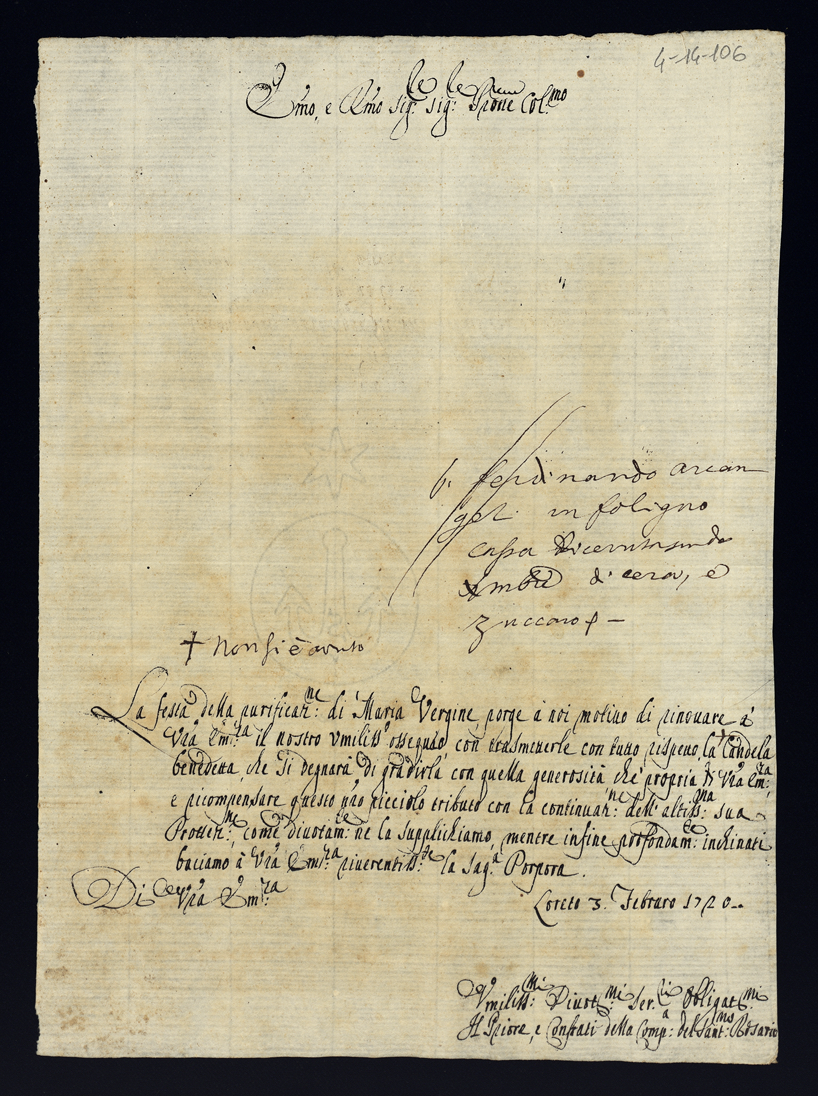 4-14-106
Emo, e Rmo Sig.re Sig.re Prone Col.mo
ferdinando arcan
gel. in foligno
cassa
di cera, e
zuccaro
+ Non si è avuto
La festa della purificaz.ne di Maria Vergine porge à noi motivo di rinovare à
Vra Em.za il nostro umiliss.o ossequio con trasmetterle con tutto rispetto la Candela
benedetta, che si degnarà di gradirla con quella generosità che è propria di Vra Em.za,
e ricompensare questo nro picciolo tributo con la continuaz.ne dell'altiss.ma sua
Protett.ne, come divotam.te ne la supplichiamo, mentre infine profondam.te inchinati
baciamo à Vra Em.za riverentiss.te la Sag.a Porpora.
Di Vra Em.za
Loreto 3. Febraro 1720..
Umiliss.mi Divot.mi Ser.ri Obligat.mi
Il Priore, e Confrati della Comp.a del Sant.mo Rosario